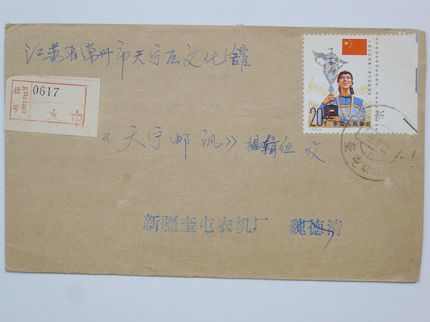 江苏省常州市天宁区文化馆
0617
《天宁邮讯》编辑组 收
20分 中国人民邮政
新疆奎屯农机厂 魏德清